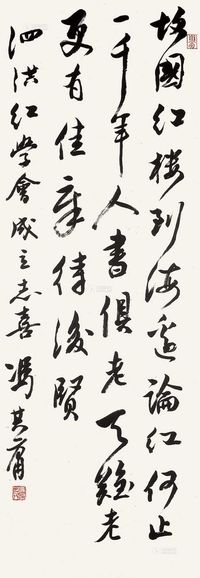 故國红楼到海邊論红何止
一千年人書俱老天難老
更有佳章待後賢
泗洪红學會成立志喜 馮其庸